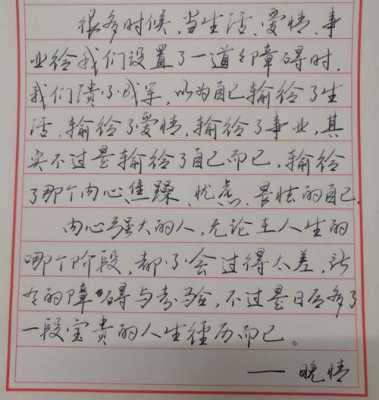 很多时候,当生活、爱情、事
业给我们设置了一道々障碍时,
我们溃不成军,以为自己输给了生
活,输给了爱情,输给了事业,其
实不过是输给了自己而已,输给
了那个内心焦躁、忧虑、畏怯的自己.
内心强大的人,无论在人生的
哪个阶段,都不会过得太差,所
有的障碍与考验,不过是日后多了
一段宝贵的人生经历而已。
——晚情